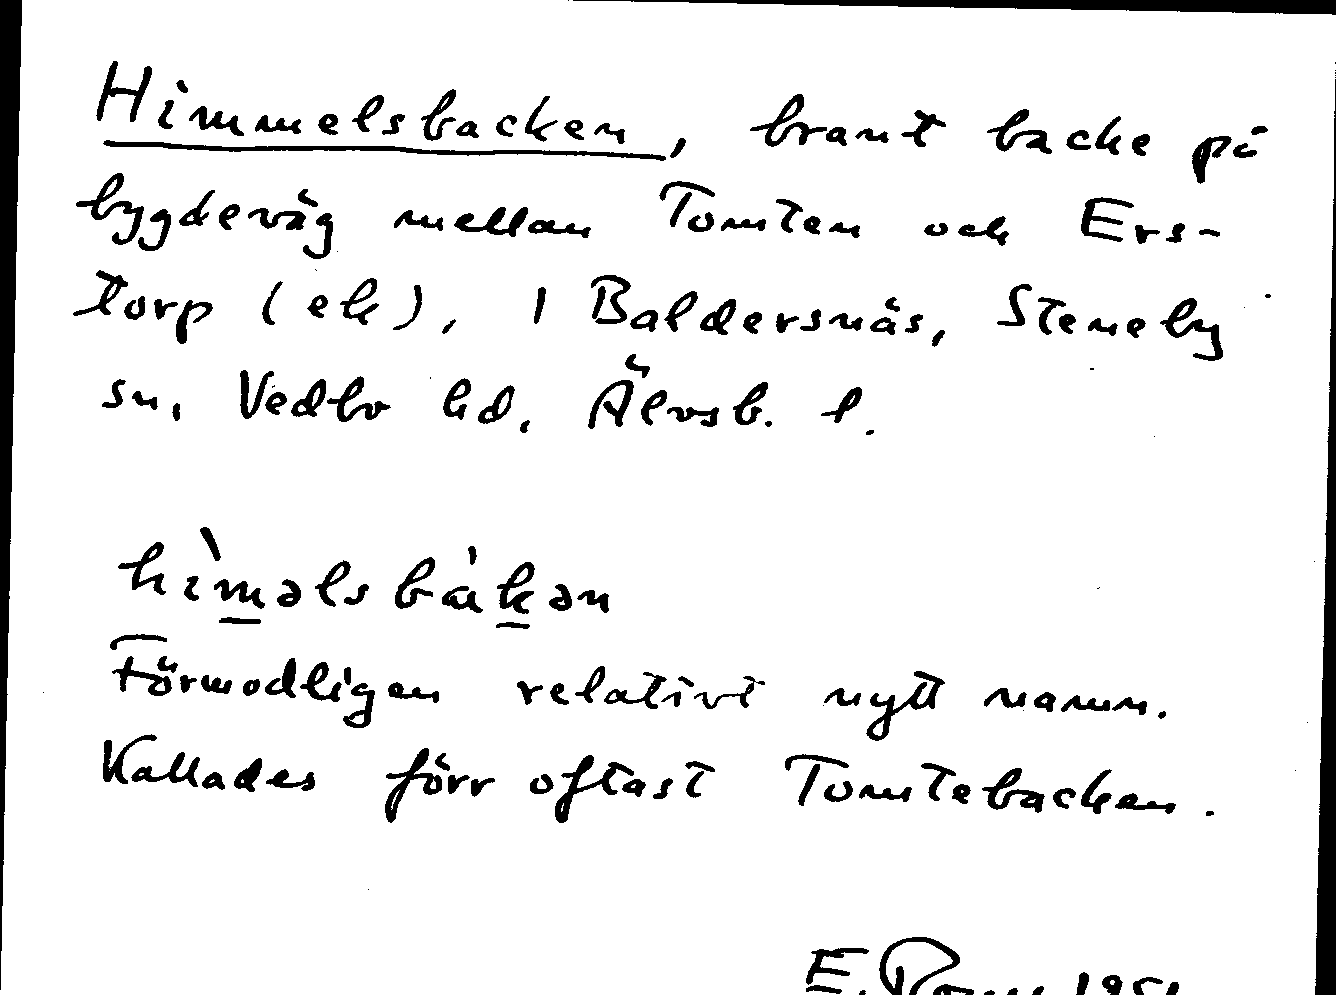 Himmelsbacken, brant backe på
bygdeväg mellan Tomten och Ers-
torp (ek), 1 Baldersnäs, Steneby
sn, Vedbo hd, Älvsb. l.
hìməlsbàkən
Förmodligen relativt nytt namn.
Kallades förr oftast Tomtebacken.
E.